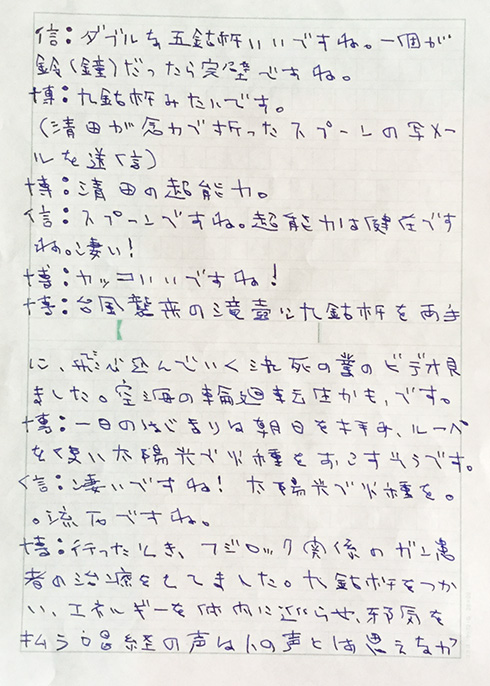 信：ダブルな五鈷杵いいですね。一個が
鈴(鐘)だったら完璧ですね。
博：九鈷杵みたいです。
(清田が念力で折ったスプーンの写メー
ルを送信)
博：清田の超能力。
信：スプーンですね。超能力は健在です
ね。凄い！
博：カッコいいですね！
博：台風襲来の滝壷に九鈷杵を両手
に、飛び込んでいく決死の業のビデオ見
ました。空海の輪廻転生かも、です。
博：一日のはじまりは朝日を拝み、ルーペ
を使い太陽光で火種をおこすそうです。
信：凄いですね！太陽光で火種を。
。流石ですね。
博：行ったとき、フジロック関係のガン患
者の治療をしてました。九鈷杵をつか
い、エネルギーを体内に巡らせ、邪気を
払う唱経の声は人の声とは思えなか